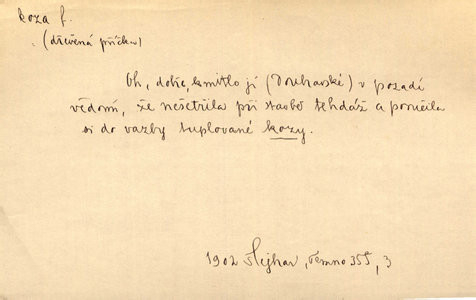 koza f.
(dřevěná příčka)
Oh, dobře, kmitlo jí (Doubravské) v pozadí
vědomí, že nešetřila při stavbě tehdáž a poručila
si do vazby tuplované kozy.
1902 Šlejhar, Temno 355, 3